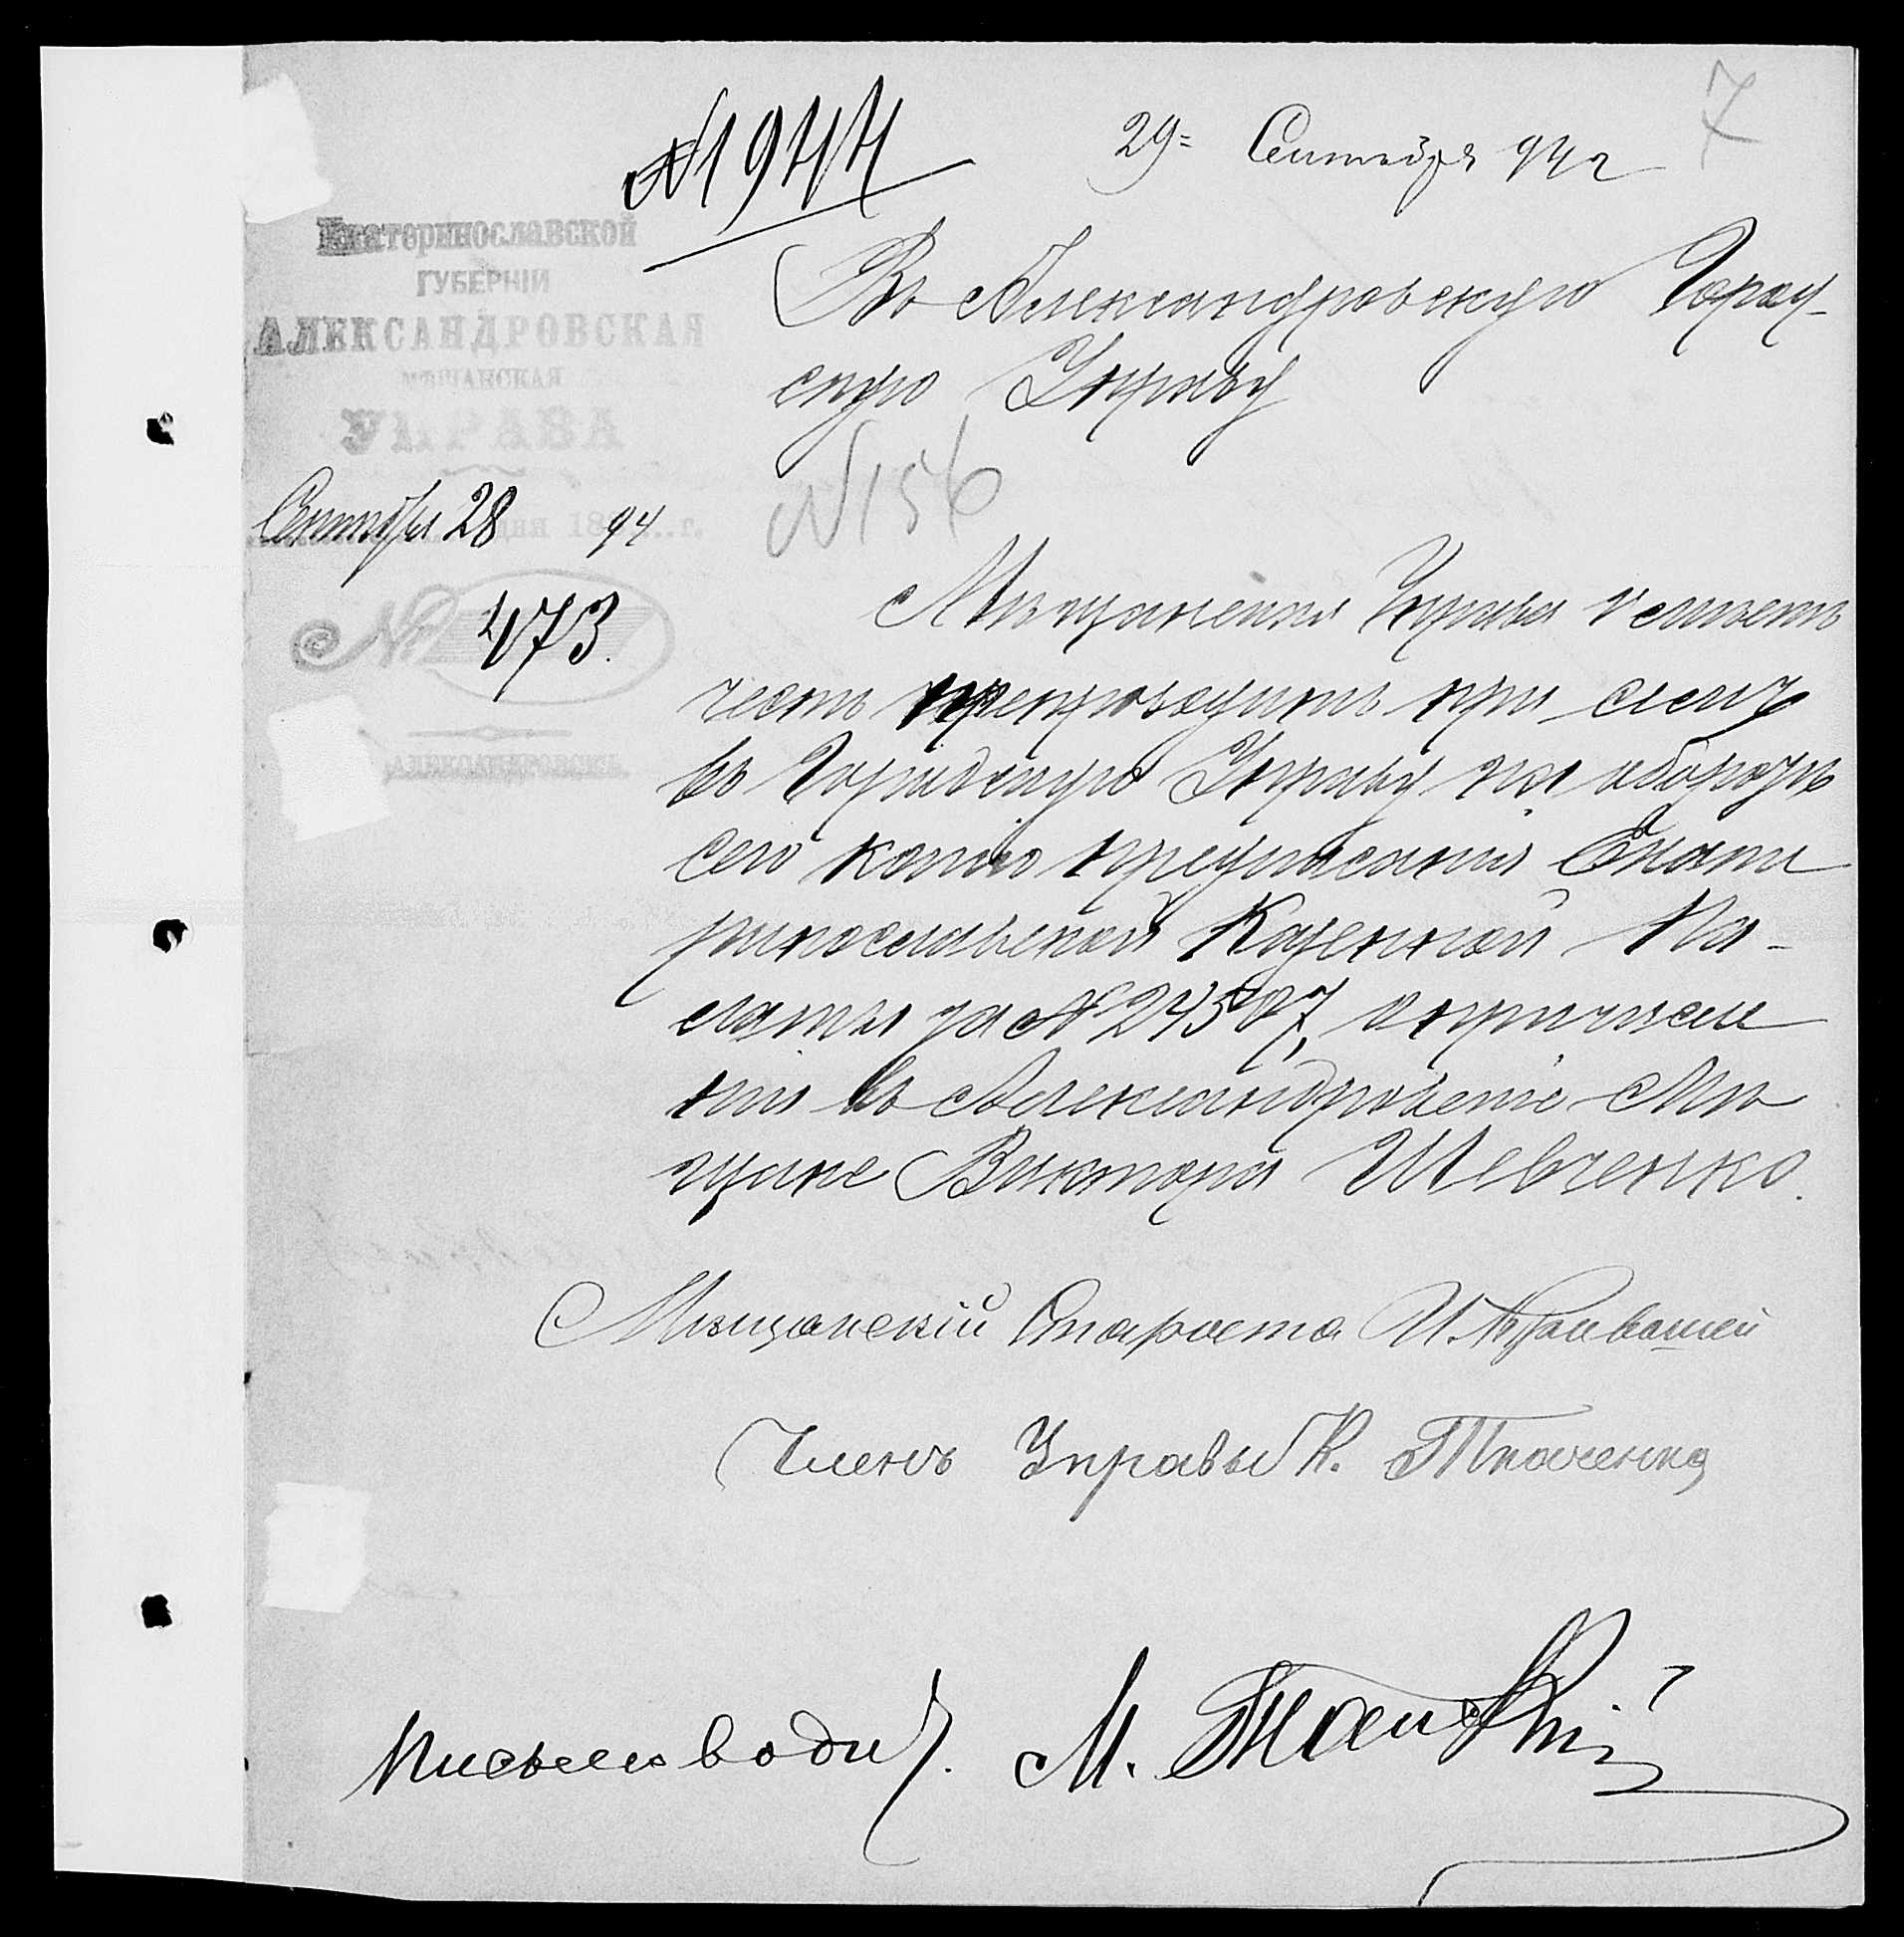 7
№ 1944
29= Сентября 94 г
Екатеринославской
ГУБЕРНІИ
АЛЕКСАНДРОВСКАЯ
МѢЩАНСКАЯ
УПРАВА
Сентября 28 дня 1894 г.
№ 473.
АЛЕКСАНДРОВСКЪ.
Въ Александровскую Город-
скую Управу
№ 156
Мѣщанская Управа имѣетъ
честь препроводить при семъ
въ Городскую Управу на оборотѣ
сего копію предписанія Екате
ринославской Казенной Па-
латы за № 24507, о причисле
ніи въ Александровскіе Мѣ
щане Виктора Шевченко.
Мѣщанскій Староста И.
Членъ Управы К. Ткаченко
Письмоводит. М.